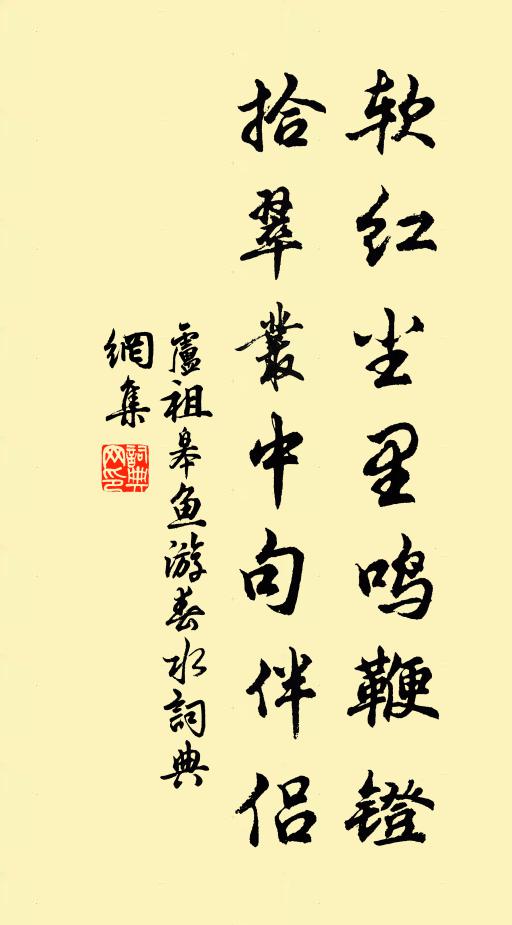 软红尘里鸣鞭镫
拾翠丛中句伴侣
盧祖皋鱼游春水詞典
網集
詞典网印